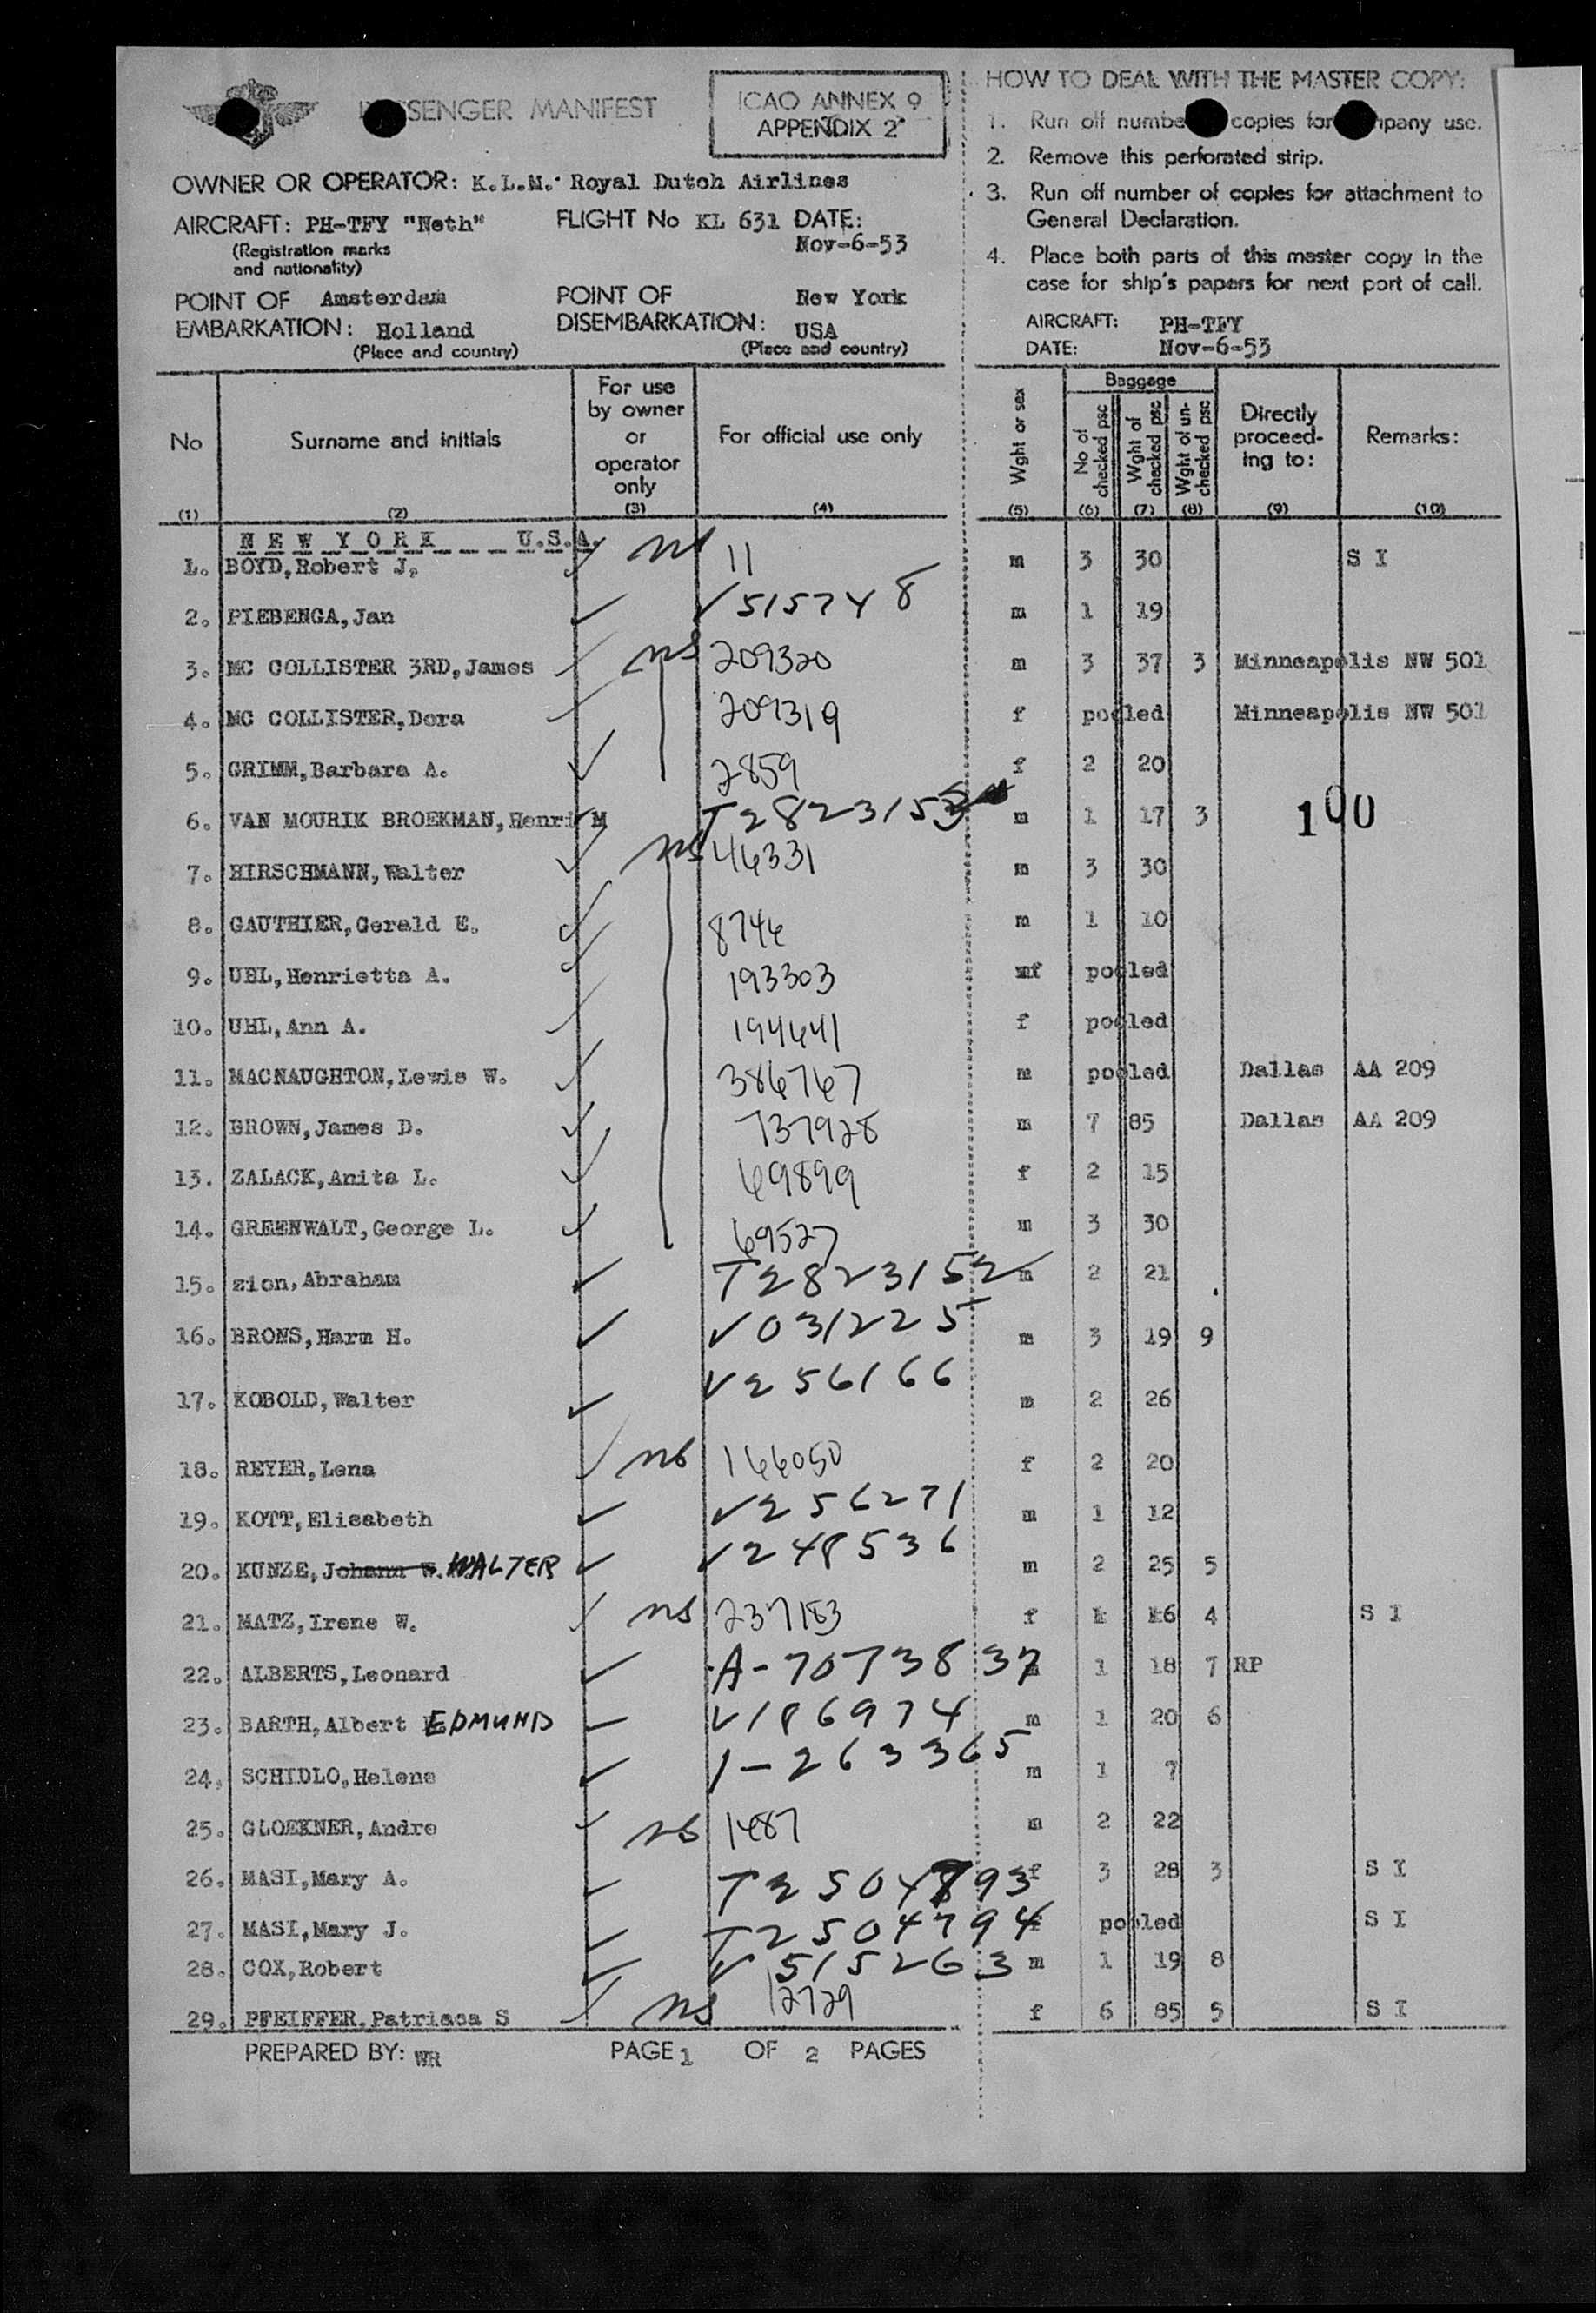 SENGER MANIFEST
ICAO ANNEX 9
APPENDIX 2
OWNER OR OPERATOR: K.L.M. Royal Dutch Airlines
AIRCRAFT: PH-TFY "Neth" FLIGHT No KL 631 DATE:
(Registration marks Nov-6-53
and nationality)
POINT OF Amsterdam POINT OF New York
EMBARKATION: Holland DISEMBARKATION: USA
(Place and country) (Place and country)
HOW TO DEAL WITH THE MASTER COPY:
1. Run off numbe copies for mpany use.
2. Remove this perforated strip.
3. Run off number of copies for attachment to
General Declaration.
4. Place both parts of this master copy in the
case for ship's papers for next port of call.
AIRCRAFT: PH-TFY
DATE: Nov-6-53
No (1)
Surname and initials (2)
For use by owner or operator only (3)
For official use only (4)
Wght or sex (5)
Baggage
No of checked psc (6)
Wght of checked psc (7)
Wght of un-checked psc (8)
Directly proceed-ing to: (9)
Remarks: (10)
NEW YORK U.S.A.
1. BOYD, Robert J. ns 11 m 3 30 S I
2. PIEBENGA, Jan V515748 m 1 19
3. MC COLLISTER 3RD, James ns 209320 m 3 37 3 Minneapolis NW 501
4. MC COLLISTER, Dora 209319 f pooled Minneapolis NW 501
5. GRIMM, Barbara A. 2859 f 2 20
6. VAN MOURIK BROEKMAN, Henri M T2823153 m 1 17 3 100
7. HIRSCHMANN, Walter ns 46331 m 3 30
8. GAUTHIER, Gerald E. 8746 m 1 10
9. UHL, Henrietta A. 193303 f pooled
10. UHL, Ann A. 194641 f pooled
11. MACNAUGHTON, Lewis W. 386767 m pooled Dallas AA 209
12. BROWN, James D. 737928 m 7 85 Dallas AA 209
13. ZALACK, Anita L. 69899 f 2 15
14. GREENWALT, George L. 69527 m 3 30
15. zion, Abraham T2823152 m 2 21
16. BRONS, Harm H. V031225 m 3 19 9
17. KOBOLD, Walter V256166 m 2 26
18. REYER, Lena ns 166050 f 2 20
19. KOTT, Elisabeth V256271 m 1 12
20. KUNZE, Johann W. WALTER V248536 m 2 25 5
21. MATZ, Irene W. ns 237183 f 16 4 S I
22. ALBERTS, Leonard A-7073837 1 18 7 RP
23. BARTH, Albert EDMUND V186974 m 1 20 6
24. SCHIDLO, Helene 1-263365 m 1 7
25. GLOEKNER, Andre ns 1487 m 2 22
26. MASI, Mary A. T2504793 f 3 28 3 S I
27. MASI, Mary J. T2504794 pooled S I
28. COX, Robert V515263 m 1 19 8
29. PFEIFFER, Patriaca S ns 12729 f 6 85 5 S I
PREPARED BY: WR PAGE 1 OF 2 PAGES